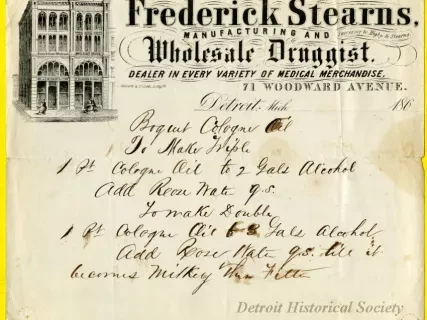 Frederick Stearns,
Successor to Higby & Stearns,
MANUFACTURING AND
Wholesale Druggist.
DEALER IN EVERY VARIETY OF MEDICAL MERCHANDISE,
71 WOODWARD AVENUE.
Detroit, Mich 186
Cologne Oil
To Make
1 Pt Cologne Oil to 2 Gals Alcohol
Add Rose Water q.s.
To make Double
1 Pt Cologne Oil Gals Alcohol
Add Rose Water q.s. till it
becomes Milkey then Filter
Detroit Historical Society